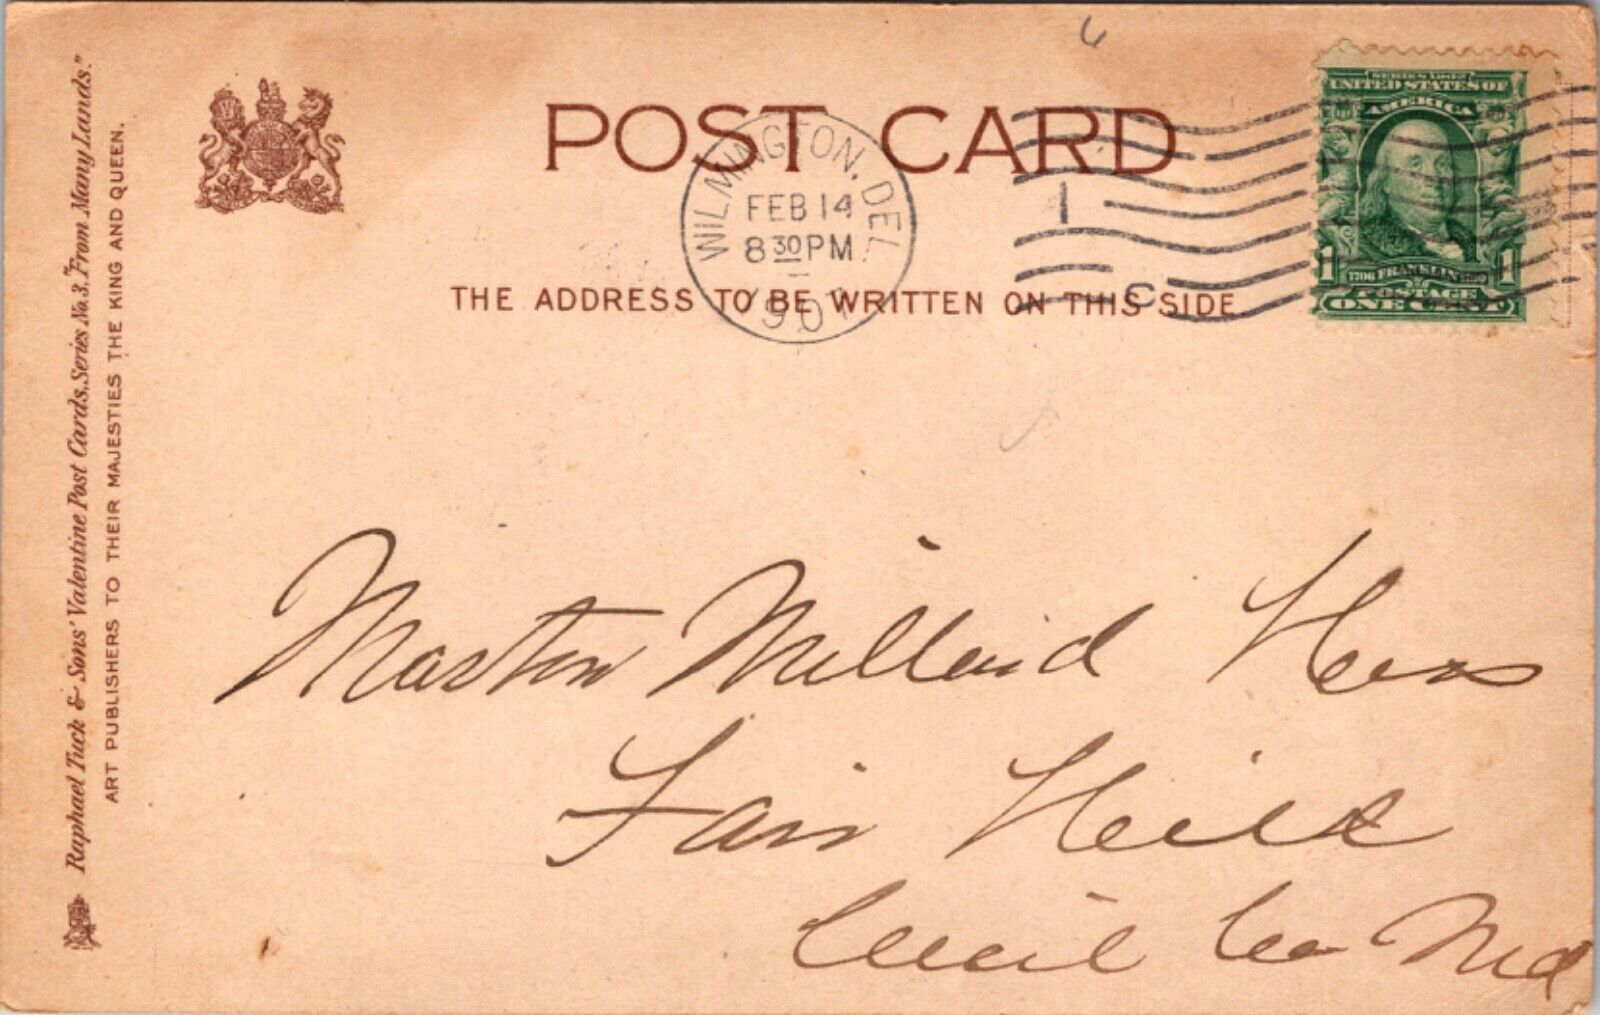 POST CARD
WILMINGTON, DEL.
FEB 14
8 30 PM
1907
THE ADDRESS TO BE WRITTEN ON THIS SIDE.
SERIES 1902
UNITED STATES OF
AMERICA
1706 FRANKLIN 1790
1 1
POSTAGE
ONE CENT
Raphael Tuck & Sons' "Valentine Post Cards, Series No. 3, From Many Lands."
ART PUBLISHERS TO THEIR MAJESTIES THE KING AND QUEEN.
Master Millard
Fair Hill
Cecil Co Md